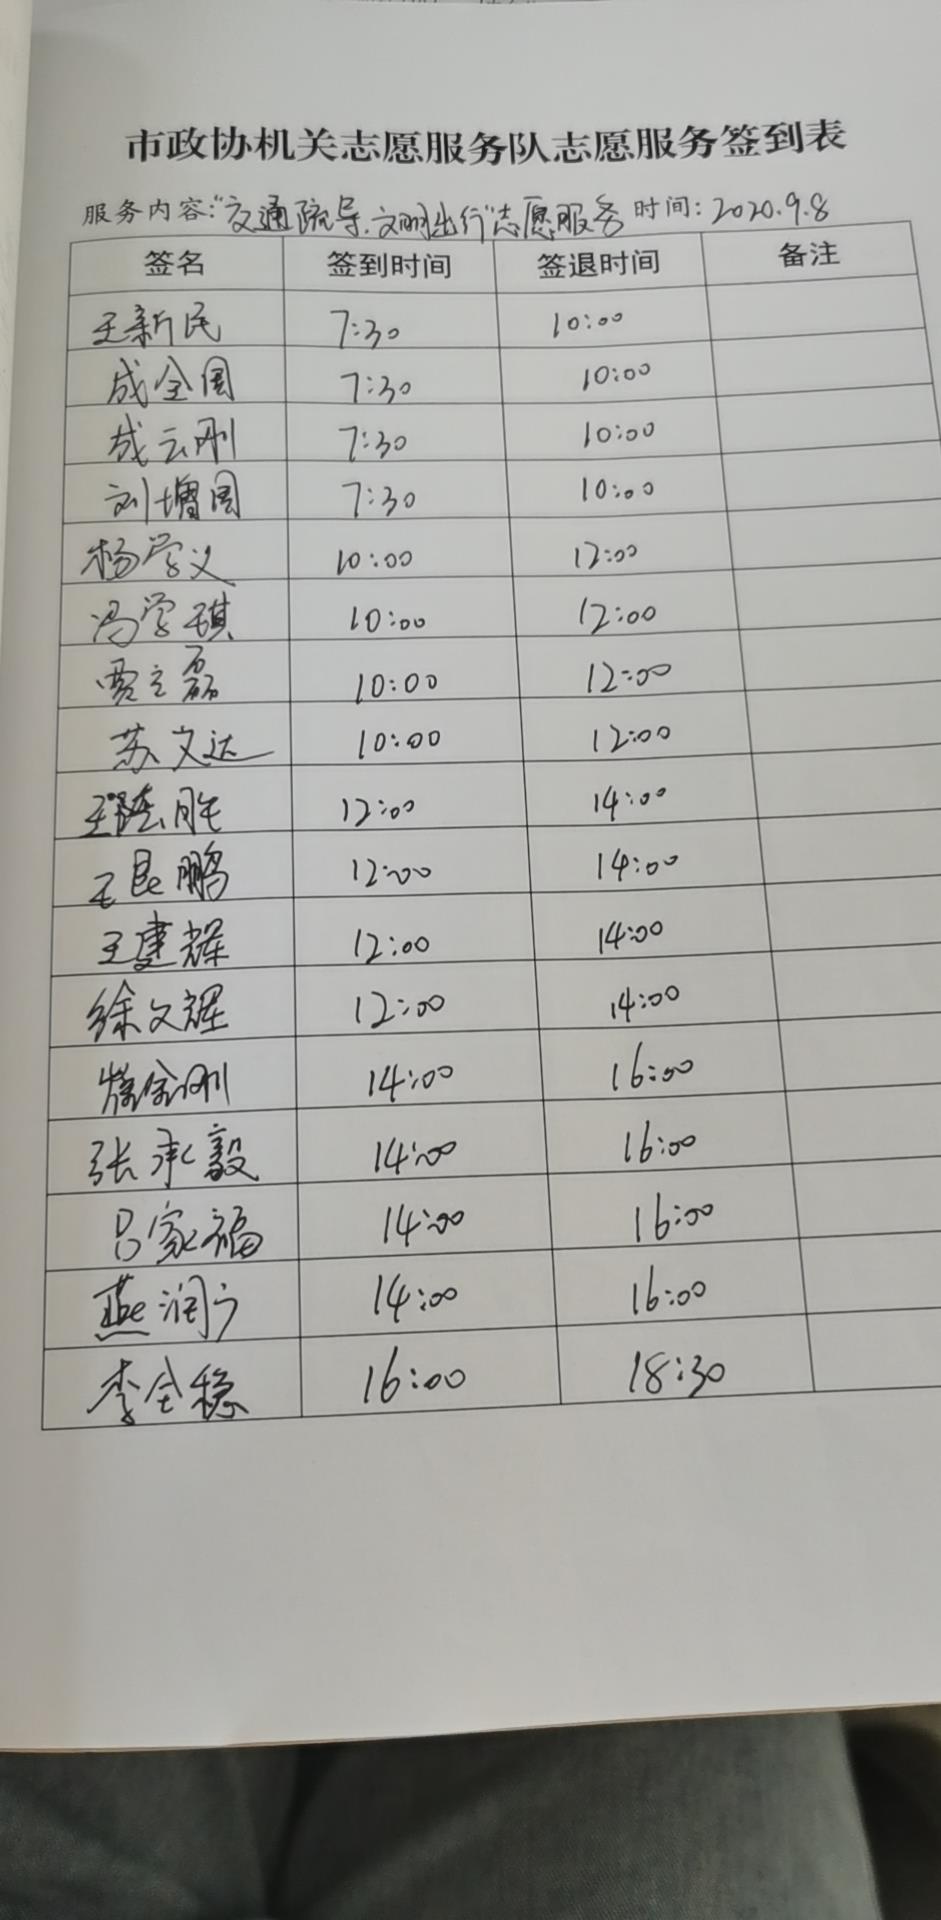 市政协机关志愿服务队志愿服务签到表
服务内容:“交通疏导、文明出行”志愿服务 时间: 2020.9.8
签名 签到时间 签退时间 备注
王新民 7:30 10:00
成全国 7:30 10:00
成云刚 7:30 10:00
刘增国 7:30 10:00
杨学义 10:00 12:00
冯学琪 10:00 12:00
贾立磊 10:00 12:00
苏文达 10:00 12:00
王陆胜 12:00 14:00
王昆鹏 12:00 14:00
王建辉 12:00 14:00
徐文耀 12:00 14:00
金刚 14:00 16:00
张承毅 14:00 16:00
吕家福 14:00 16:00
燕润广 14:00 16:00
李全稳 16:00 18:30